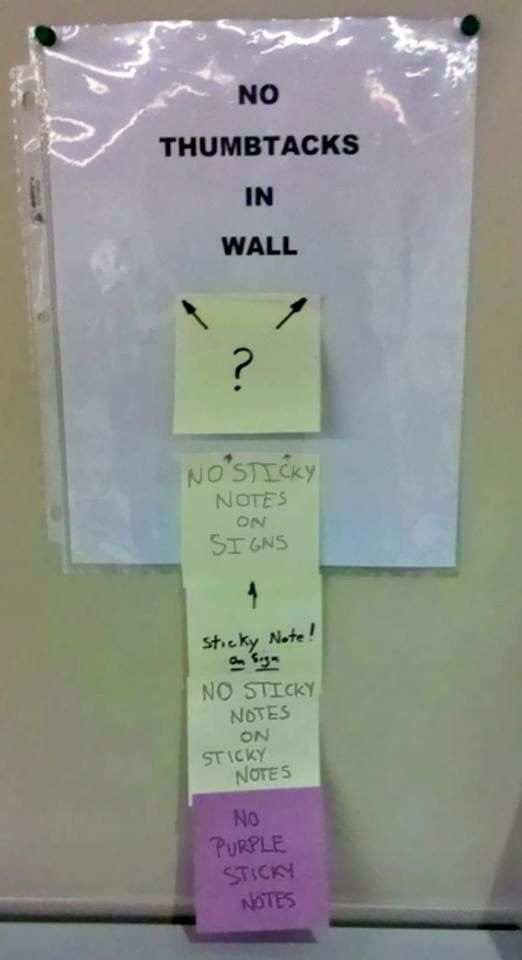 NO
THUMBTACKS
IN
WALL
?
NO STICKY
NOTES
ON
SIGNS
Sticky Note!
on Sign
NO STICKY
NOTES
ON
STICKY
NOTES
NO
PURPLE
STICKY
NOTES